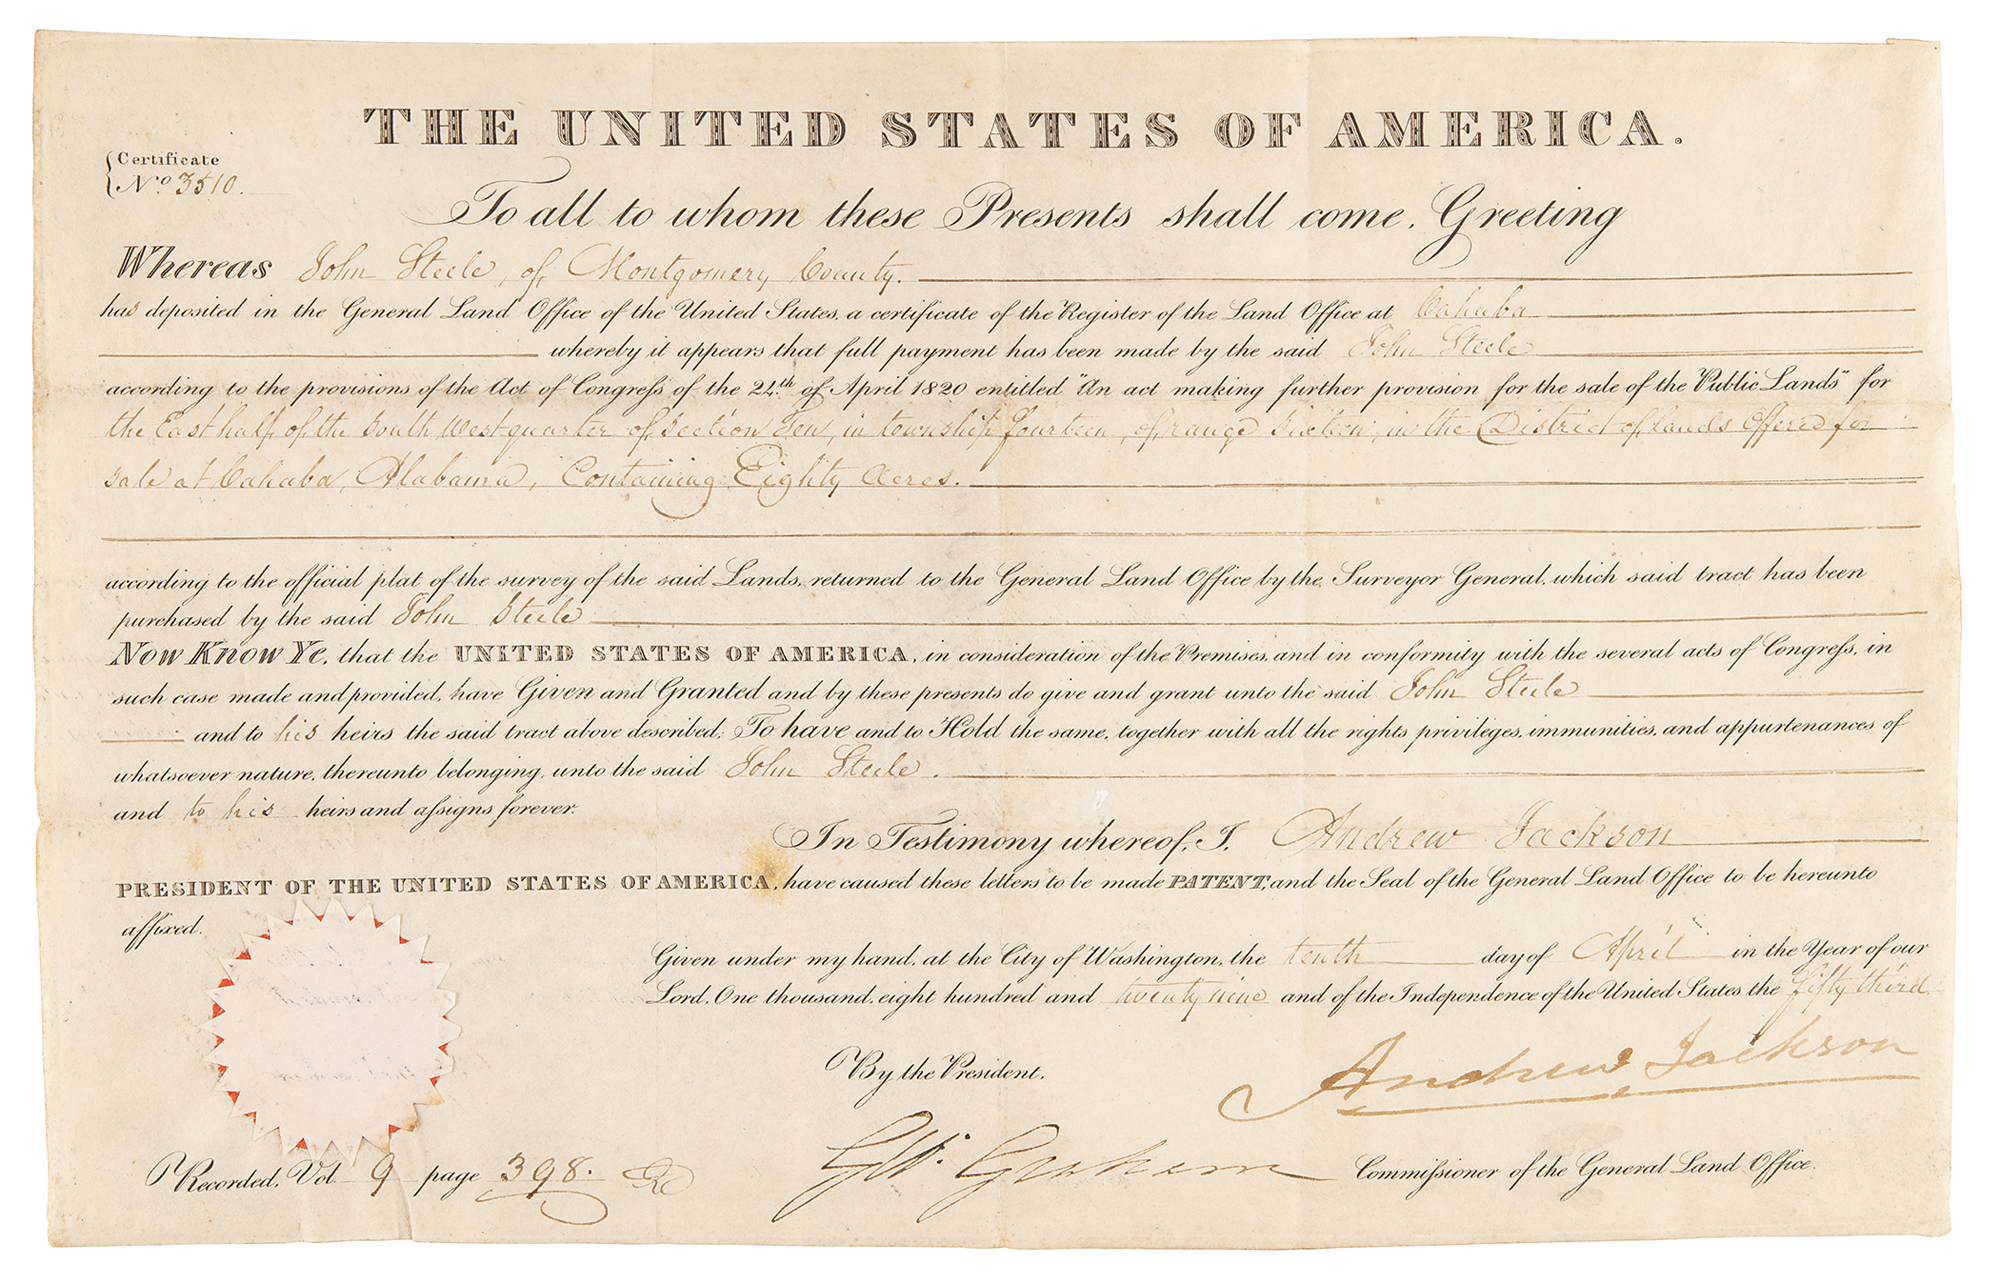 THE UNITED STATES OF AMERICA.
Certificate
No. 3510.
To all to whom these Presents shall come, Greeting
Whereas John Steele, of Montgomery County.
has deposited in the General Land Office of the United States, a certificate of the Register of the Land Office at Cahaba
whereby it appears that full payment has been made by the said John Steele
according to the provisions of the Act of Congress of the 24th of April 1820 entitled "An act making further provision for the sale of the Public Lands" for
the East half, of, the South West quarter of, Section Ten, in township fourteen, of, range Sixteen, in the District of, lands Offered for
Sale at Cahaba, Alabama, Containing Eighty Acres.
according to the official plat of the survey of the said Lands, returned to the General Land Office by the Surveyor General, which said tract has been
purchased by the said John Steele
Now Know Ye, that the UNITED STATES OF AMERICA, in consideration of the Premises, and in conformity with the several acts of Congress, in
such case made and provided, have Given and Granted and by these presents do give and grant unto the said John Steele
and to his heirs the said tract above described; To have and to Hold the same, together with all the rights privileges, immunities, and appurtenances of
whatsoever nature, thereunto belonging, unto the said John Steele.
and to his heirs and assigns forever.
In Testimony whereof, I, Andrew Jackson
PRESIDENT OF THE UNITED STATES OF AMERICA, have caused these letters to be made PATENT, and the Seal of the General Land Office to be hereunto
affixed.
Given under my hand, at the City of Washington, the tenth day of April in the Year of our
Lord, One thousand, eight hundred and twenty nine and of the Independence of the United States the fifty third
By the President,
Andrew Jackson
GW. Graham Commissioner of the General Land Office.
Recorded, Vol. 9 page 398.